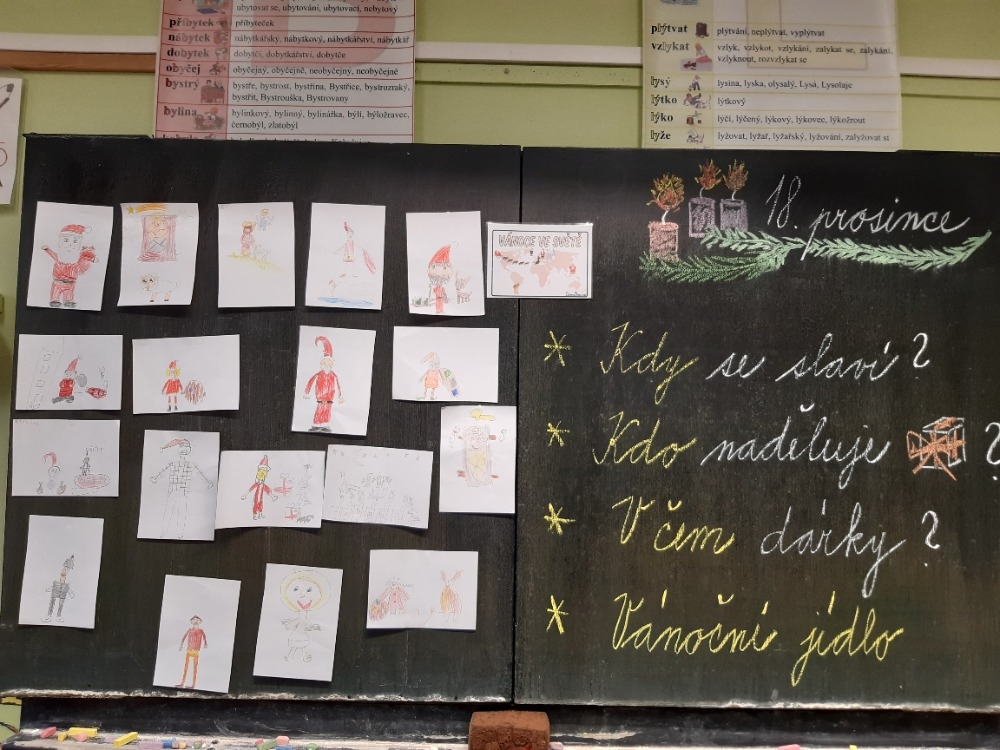 ubytovat se, ubytování, ubytovací, nebytový
příbytek příbyteček
nábytek nábytkářský, nábytkový, nábytkářství, nábytkář
dobytek dobytčí, dobytkářství, dobytče
obyčej obyčejný, obyčejně, neobyčejný, neobyčejně
bystrý bystře, bystrost, bystřina, Bystřice, bystrozraký,
bystřit, Bystrouška, Bystrovany
bylina bylinkový, bylinný, bylinářka, býlí, býložravec,
černobýl, zlatobýl
plýtvat plýtvání, neplýtvat, vyplýtvat
vzlykat vzlyk, vzlykot, vzlykání, zalykat se, zalykání,
vzlyknout, rozvzlykat se
lysý lysina, lyska, olysalý, Lysá, Lysolaje
lýtko lýtkový
lýko lýčí, lýčený, lýkový, lýkovec, lýkožrout
lyže lyžovat, lyžař, lyžařský, lyžování, zalyžovat si
VÁNOCE VE SVĚTĚ
18. prosince
* Kdy se slaví?
* Kdo naděluje ?
* V čem dárky?
* Vánoční jídlo